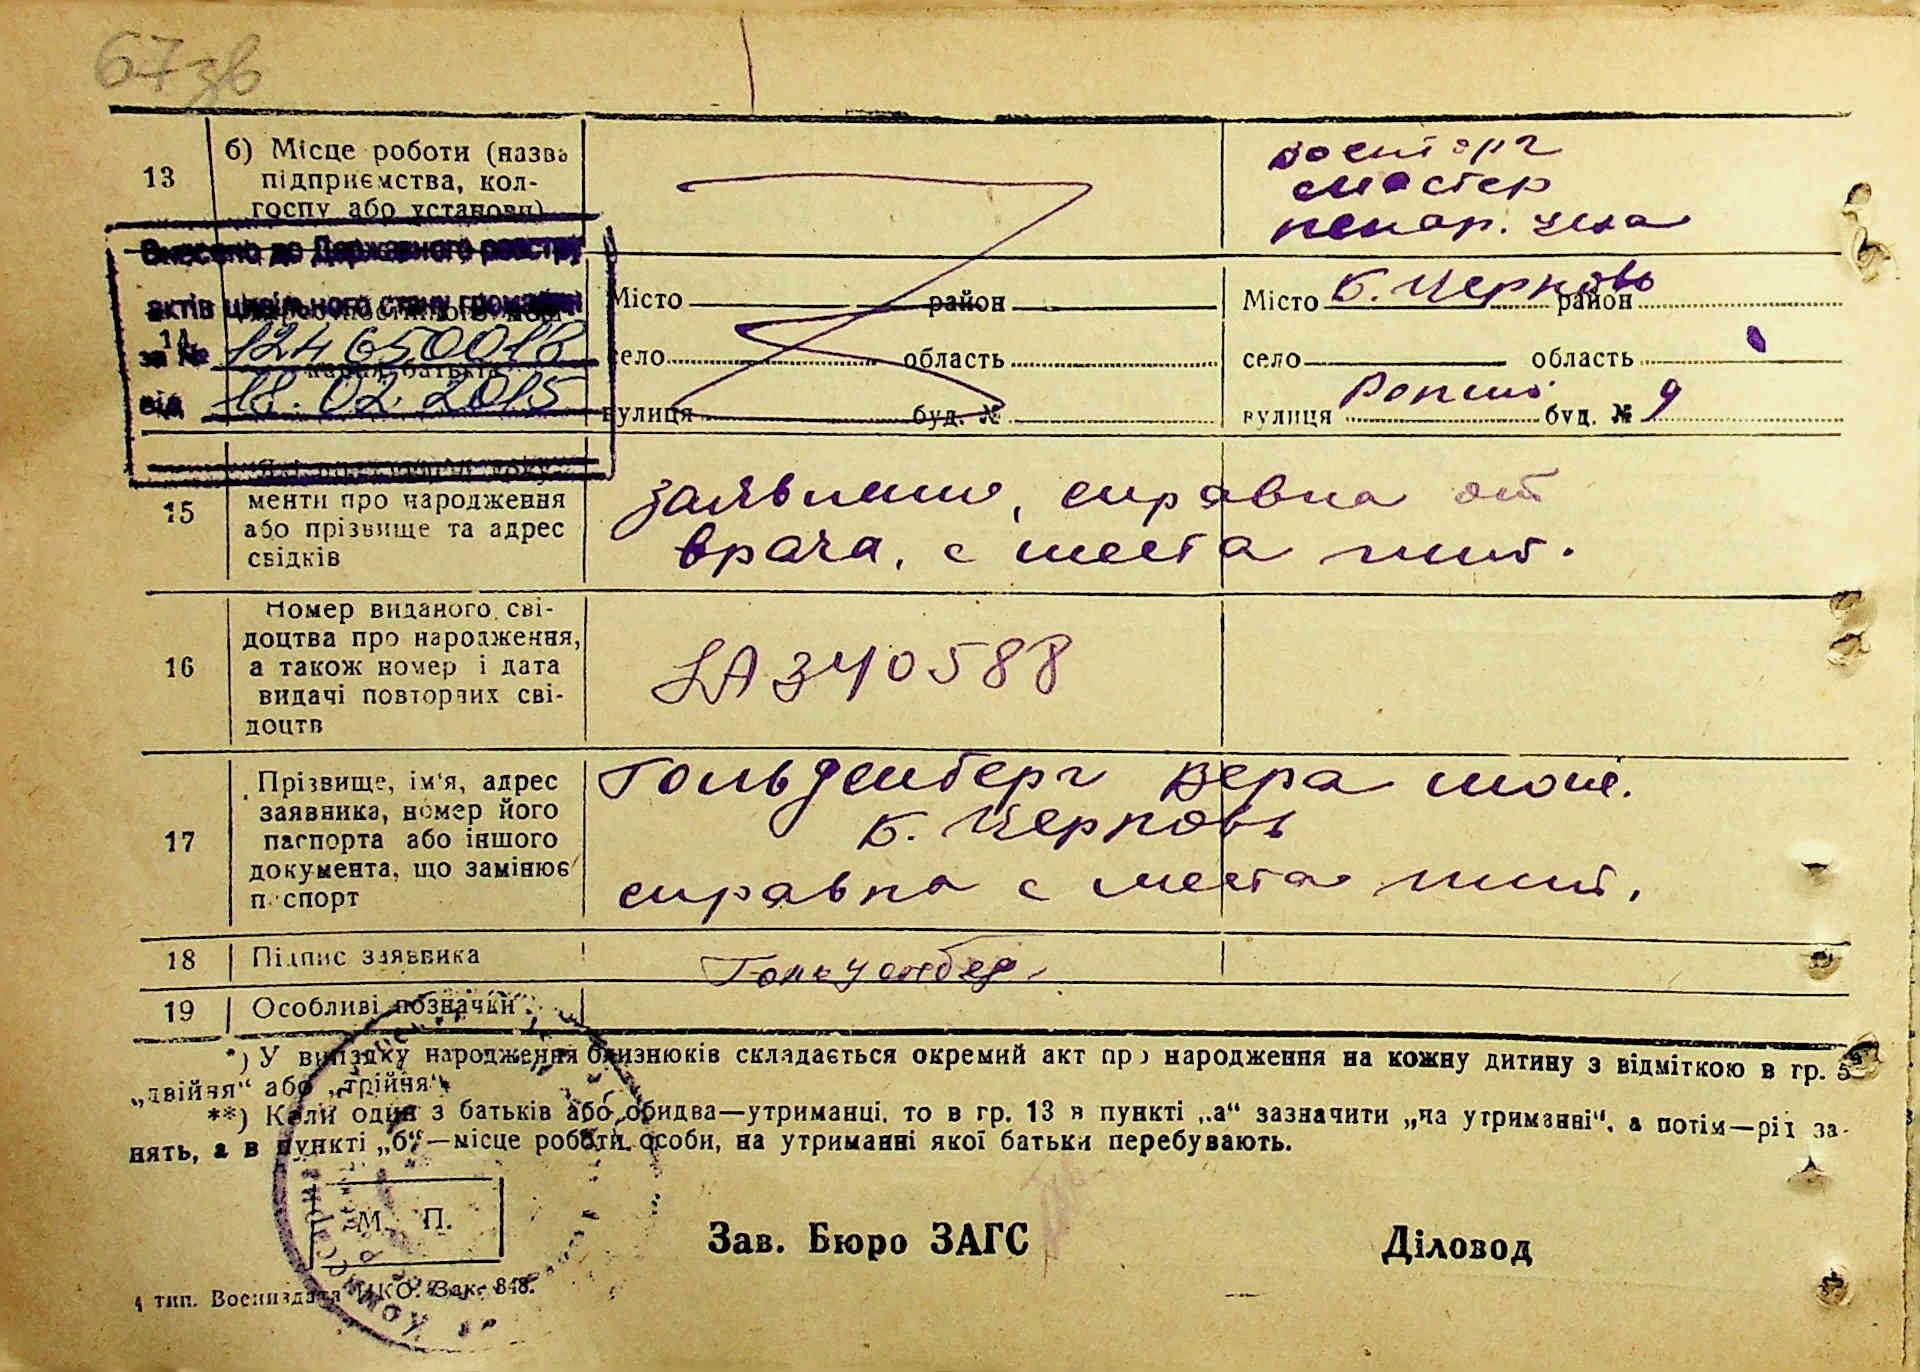 67зв
13
б) Місце роботи (назва
підприємства, кол-
госпу або установи)
военторг
мастер
пекар. цеха
Внесено до Державного реєстру
актів цивільного стану громадян
за №
від 18.02.2015
14
Місто район
село область
вулиця буд. №
Місто Б. Церковь район
село область
вулиця буд. № 9
15
менти про народження
або прізвище та адрес
свідків
заявление, справка от
врача, с места жит.
16
Номер виданого сві-
доцтва про народження,
а також номер і дата
видачі повторних сві-
доцтв
340588
17
Прізвище, ім'я, адрес
заявника, номер його
паспорта або іншого
документа, що замінює
п спорт
Гольденберг Вера
Б. Церковь
справка с места жит.
18
Підпис заявника
19
Особливі позначки
*) У випадку народження близнюків складається окремий акт про народження на кожну дитину з відміткою в гр. 5
„двійня“ або „трійня“.
**) Коли один з батьків або обидва—утриманці, то в гр. 13 в пункті „а“ зазначити „на утриманні“, а потім—рід за-
нять, а в пункті „б“—місце роботи особи, на утриманні якої батьки перебувають.
М. П.
Зав. Бюро ЗАГС
Діловод
4 тип. Воениздата НКО. Зак. 848.